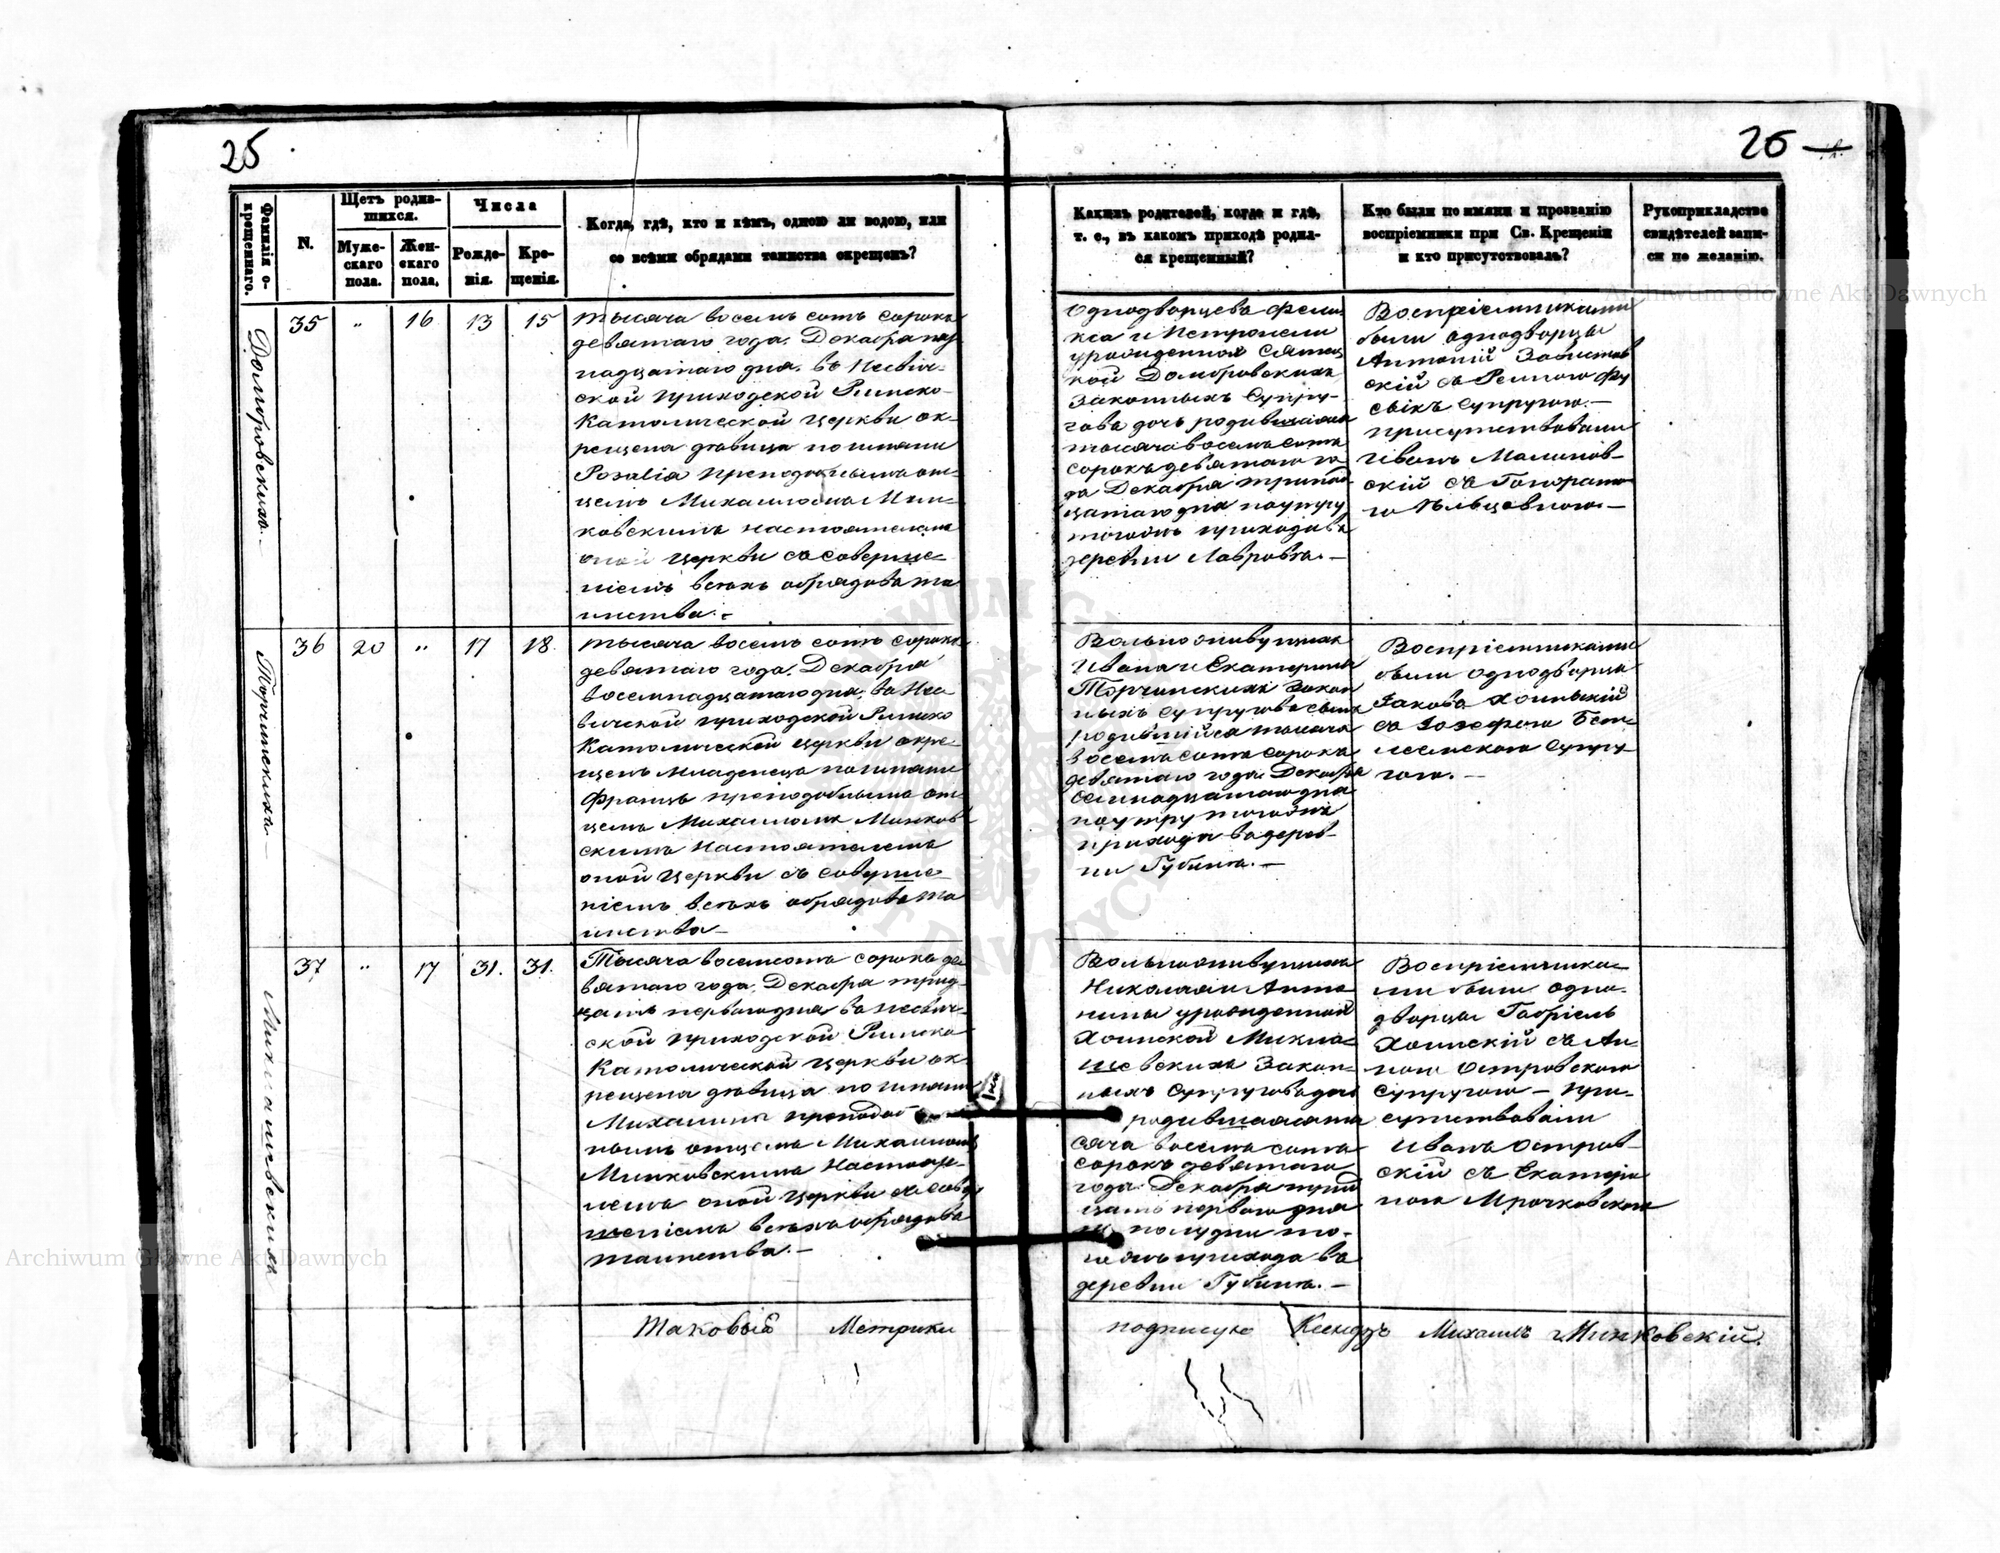 25
26
Фамилія о-
крещеннаго.
N.
Щетъ родив-
шихся.
Муже-
скаго
пола.
Жен-
скаго
пола.
Числа
Рожде-
нія.
Кре-
щенія.
Когда, гдѣ, кто и кѣмъ, одною ли водою, или
со всѣми обрядами таинства окрещенъ?
Какихъ родителей, когда и гдѣ,
т. е., въ какомъ приходѣ родил-
ся крещенный?
Кто были по имени и прозванію
воспріемники при Св. Крещеніи
и кто присутствовалъ?
Рукоприкладство
свидѣтелей запи-
си по желанію.
Домбровскихъ.—
35
"
16
13
15
тысяча восемъ сотъ сорокъ
девятаго года. Декабря пят
надцатаго дня. въ Несвич-
ской приходской Римско-
Католической Церкви ок-
рещена дѣвица по имени
Розалія преподобнымъ от-
цемъ Михаиломъ Мин-
ковскимъ настоятелемъ
оной церкви съ соверше-
ніемъ всѣхъ обрядовъ та
инства.—
Однодворцевъ Фели
кса и Петронели
урожденной
Домбровскихъ
Законныхъ Супру-
говъ дочь родившаяся
тысяча восемъ сотъ
сорокъ девятаго го
да Декабря тринад
цатаго дня поутру
тогожъ прихода въ
деревни Лавровка.—
Воспріемниками
были однодворцы
Антоній
скій съ
супругою.—
присутствовали
Иванъ Малинов-
скій съ Гоноратo
ю
Торчинскихъ—
36
20
"
17
18.
тысяча восемъ сотъ сорокъ
девятаго года. Декабря
восемнадцатаго дня. въ Нес
вичской приходской Римско
Католической церкви окре-
щенъ младенецъ по имени
Францъ преподобнымъ от-
цемъ Михаиломъ Минков
скимъ Настоятелемъ
оной Церкви съ соверше-
ніемъ всѣхъ обрядовъ та
инства—
Вольноживущихъ
Ивана и Екатерины
Торчинскихъ закон
ныхъ супруговъ сынъ
родившійся тысяча
восемъ сотъ сорокъ
девятаго года Декабря
семнадцатаго дня
поутру тогожъ
прихода въ дерев-
ни Губинъ.—
Воспріемниками
были однодворцы
Яковъ Хоинскій
съ Іозефою
супру-
гою.—
37
"
17
31.
31.
Тысяча восемсотъ сорокъ де
вятаго года. Декабря трид-
цать перваго дня въ Несвич-
ской приходской Римско
Католической церкви ок-
рещена дѣвица по имени
Михалина преподоб
нымъ отцемъ Михаиломъ
Минковскимъ Настояте-
лемъ оной Церкви съ совер
шеніемъ всѣхъ обрядовъ
таинства.—
Вольноживущихъ
Николая и Анто
нины урожденной
Хоинской
Закон-
ныхъ Супруговъ дочь
родившаяся ты
сяча восемъ сотъ
сорокъ девятаго
года. Декабря трид
цать перваго дня
полудни то-
гожъ прихода въ
деревни Губинъ.—
Воспріемника-
ми были одно-
дворцы Габріель
Хоинскій съ Ан-
ною Островскою
Супругою— при-
сутствовали
Иванъ Островс-
кій съ Екатери
ною Мрочковскою
Таковыѣ Метрики подписую Ксендзъ Михаилъ Минковскій.
Archiwum Główne Akt Dawnych
Archiwum Główne Akt Dawnych